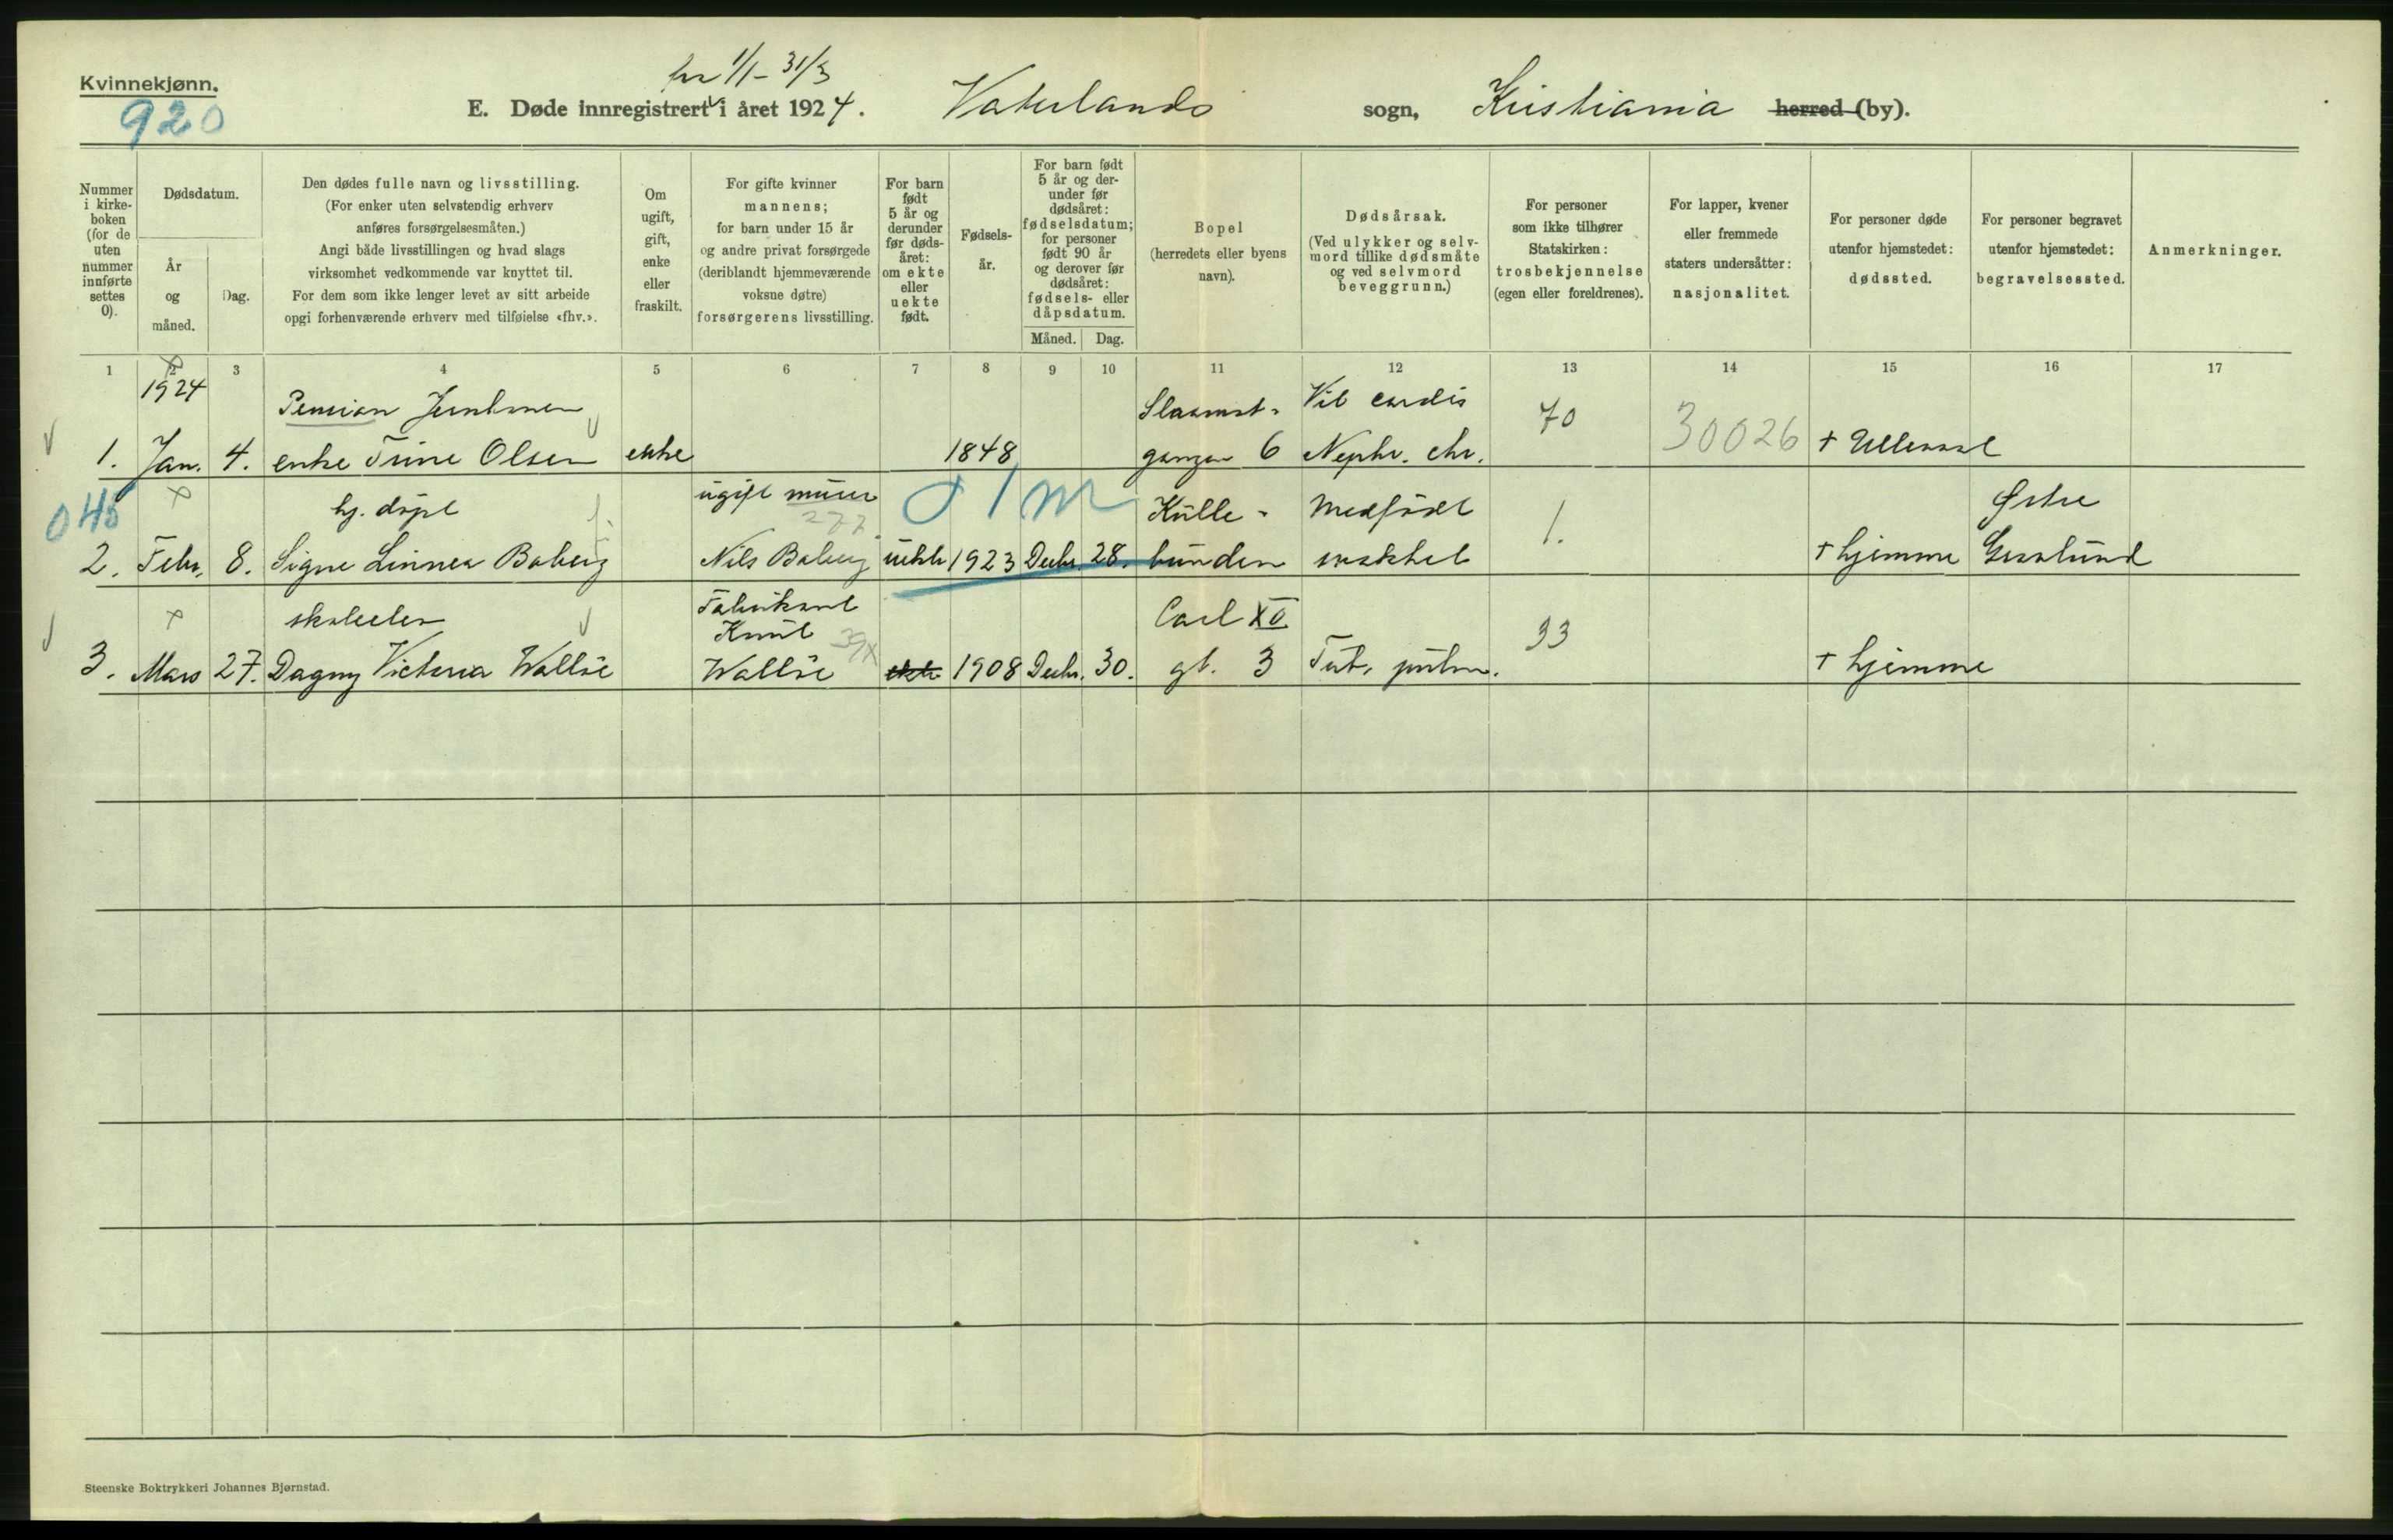 Kvinnekjønn.
920
fra 1/1 - 31/3
E. Døde innregistrert i året 1924. Vaterlands sogn, Kristiania herred (by).
Nummer i kirke-boken (for de uten nummer innførte settes 0).
Dødsdatum.
År og måned.
Dag.
Den dødes fulle navn og livsstilling.
(For enker uten selvstendig erhverv
anføres forsørgelsesmåten.)
Angi både livsstillingen og hvad slags
virksomhet vedkommende var knyttet til.
For dem som ikke lenger levet av sitt arbeide
opgi forhenværende erhverv med tilføielse «fhv.».
Om ugift, gift, enke eller fraskilt.
For gifte kvinner
mannens;
for barn under 15 år
og andre privat forsørgede
(deriblandt hjemmeværende
voksne døtre)
forsørgerens livsstilling.
For barn født 5 år og derunder før døds-året: om ekte eller uekte født.
Fødsels-år.
For barn født 5 år og der-under før dødsåret: fødselsdatum; for personer født 90 år og derover før dødsåret: fødsels- eller dåpsdatum.
Måned. Dag.
Bopel
(herredets eller byens
navn).
Dødsårsak.
(Ved ulykker og selv-
mord tillike dødsmåte
og ved selvmord
beveggrunn.)
For personer
som ikke tilhører
Statskirken:
trosbekjennelse
(egen eller foreldrenes).
For lapper, kvener
eller fremmede
staters undersåtter:
nasjonalitet.
For personer døde
utenfor hjemstedet:
dødssted.
For personer begravet
utenfor hjemstedet:
begravelsessted.
Anmerkninger.
1 2 3 4 5 6 7 8 9 10 11 12 13 14 15 16 17
1924
Pension Slaamot- Vit cordis 70
1. Jan. 4. enke Trine Olsen enke 1848 gangen 6 Nephr. chr. 30026 + Ullevaal
045 hj. døpt ugift murer 277 01m Kulle- Medfødt 1. Østre
2. Febr. 8. Signe Linnea Boberg Nils Boberg uekte 1923 Decbr. 28. bunden svakhet + hjemme Grønlund
skoleelev Fabrikant Carl XII
Knut 33
3. Mars 27. Dagny Victoria Walløe Walløe ekte 1908 Decbr. 30. gt. 3 Tub. pulm. + hjemme
Steenske Boktrykkeri Johannes Bjørnstad.